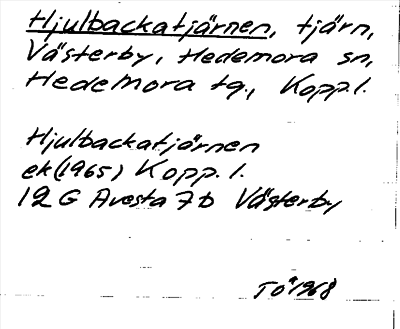 Hjulbackatjärnen, tjärn,
Västerby, Hedemora sn,
Hedemora tg., Kopp.l.
Hjulbackatjärnen
ek(1965) Kopp. l.
12 G Avesta 7b Västerby
TÖ 1968